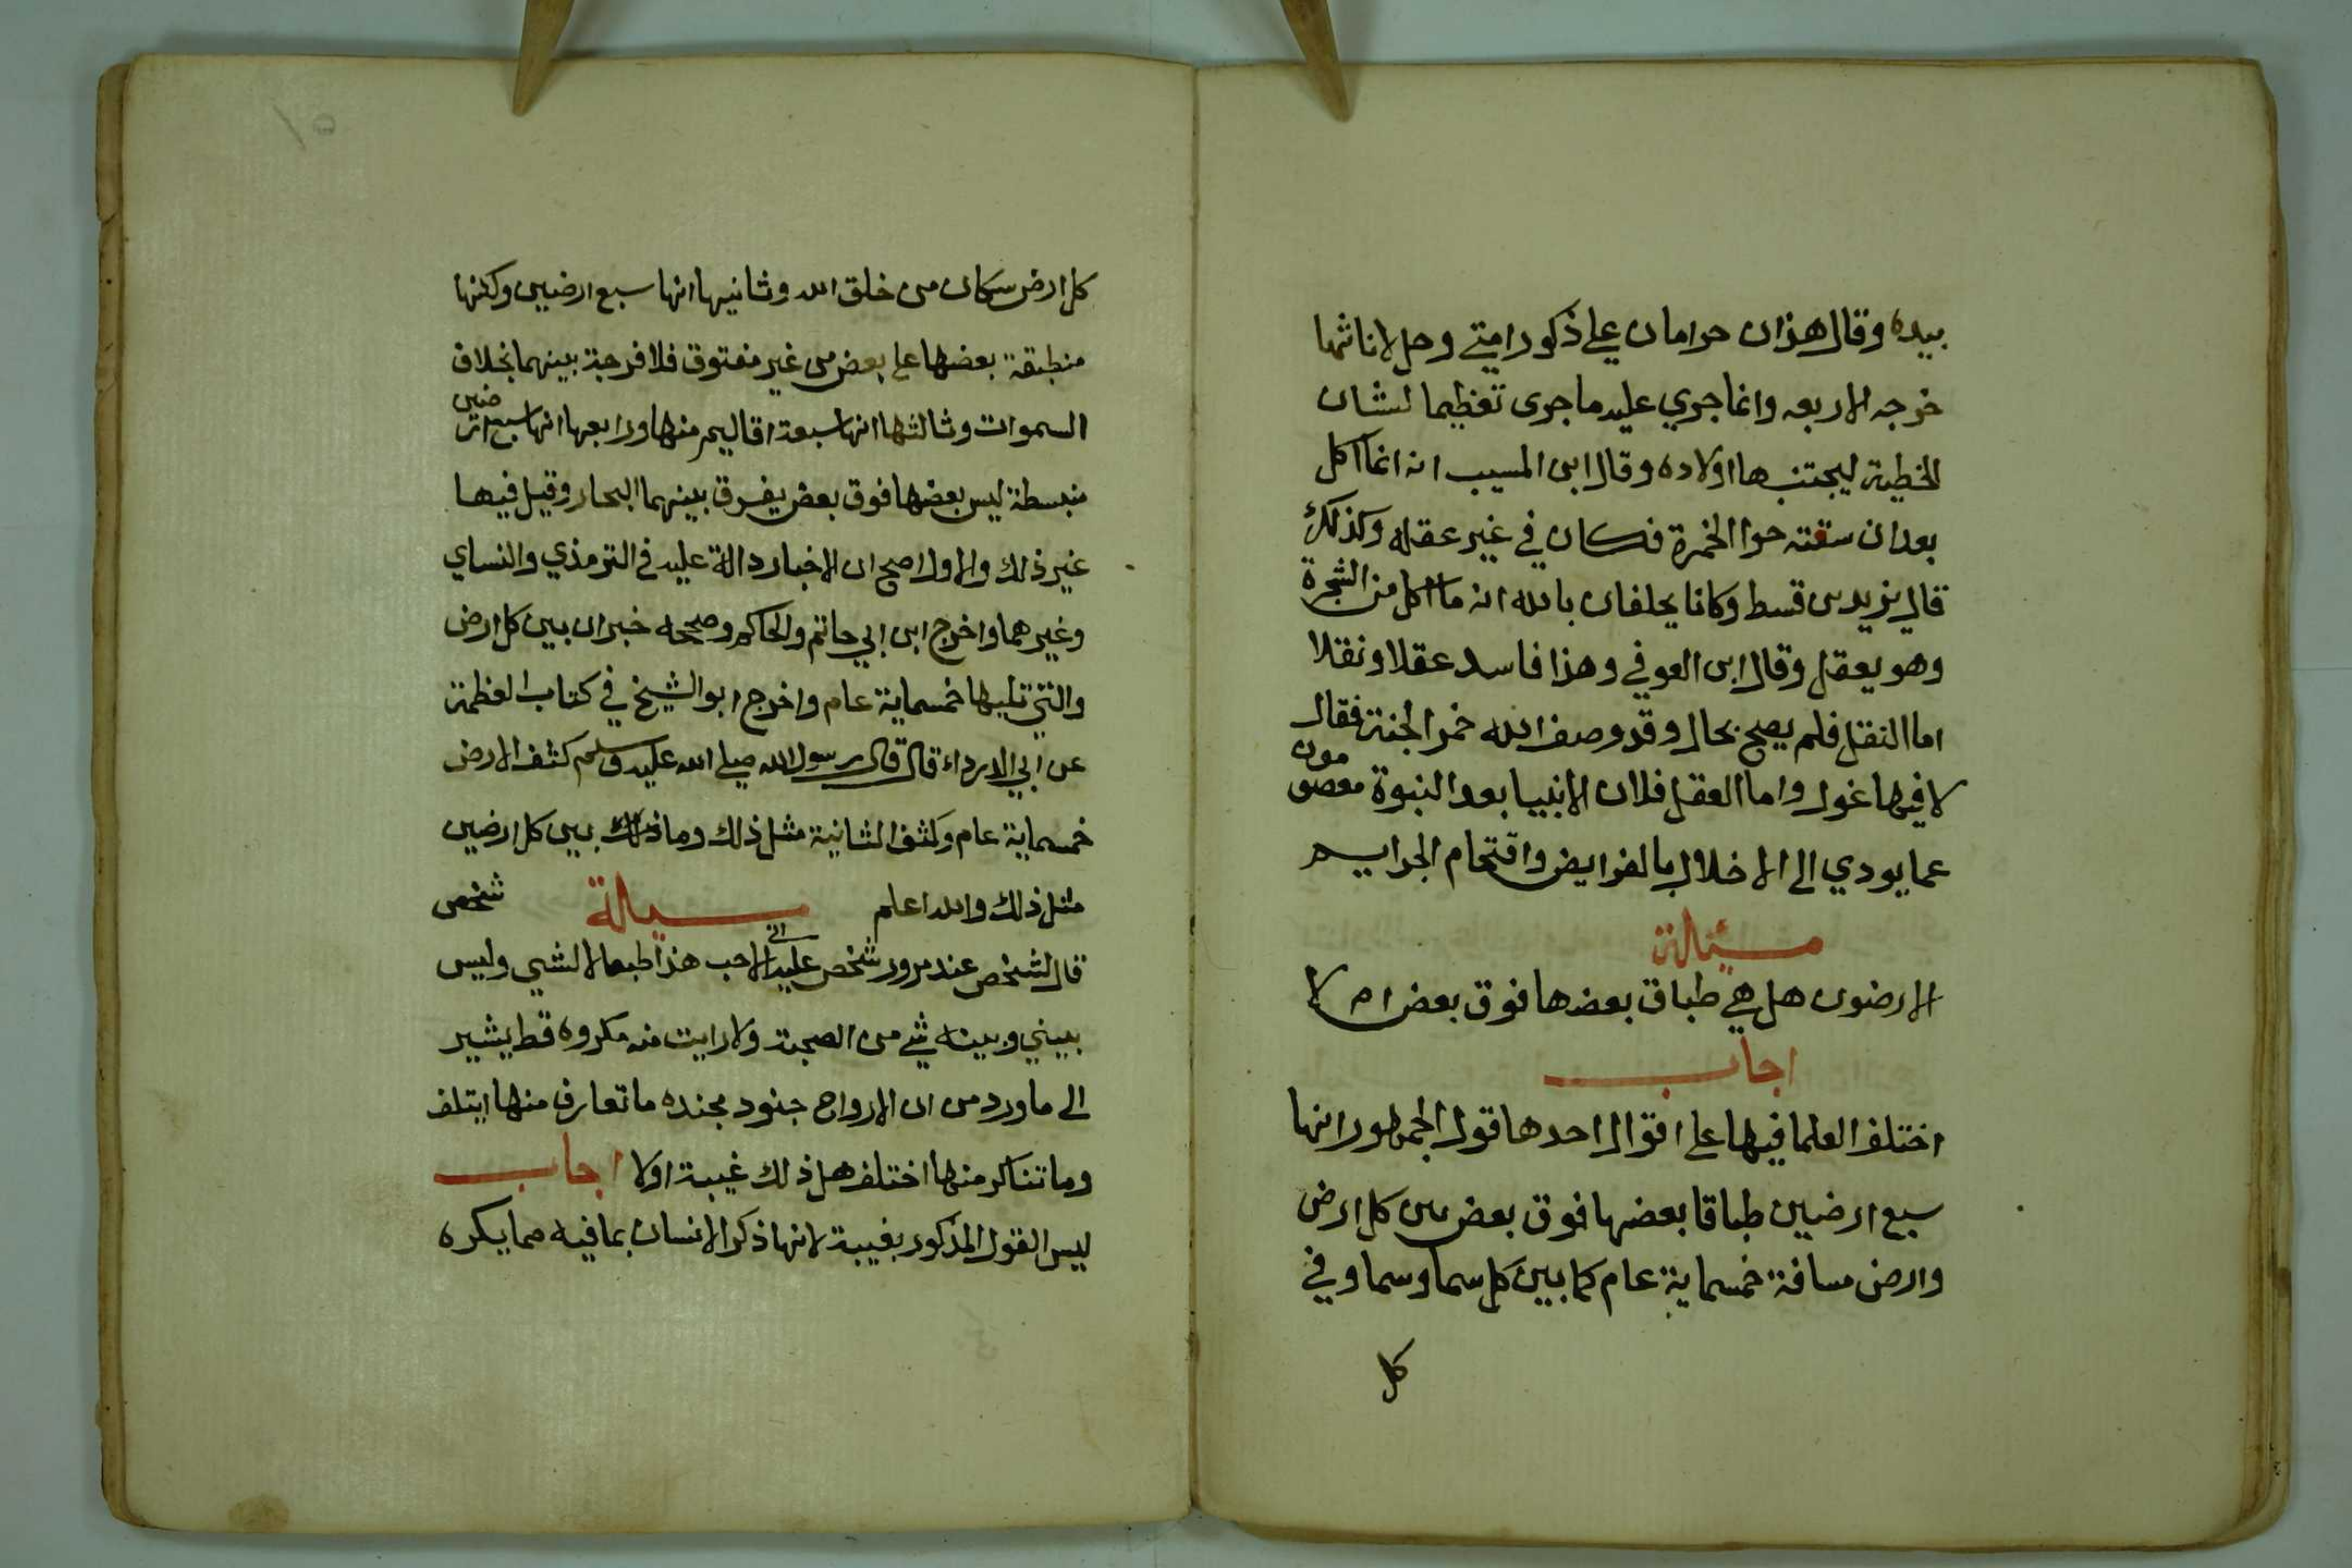 بيده وقال هذان حرامان علي ذكور امتي وحل لاناثها
خرجه الاربعه وانما جري عليه ما جرى تعظيما لشان
الخطية ليجتنبها اولاده وقال ابن المسيب انه انما اكل
بعد ان سقته حوا الخمرة فكان في غير عقله وكذلك
قال يزيد بن قسط وكانا يحلفان بالله انه ما اكل من الشجرة
وهو يعقل وقال ابن العوفي وهذا فاسد عقلا ونقلا
اما النقل فلم يصح بحال وقد وصف الله خمر الجنة فقال
لا فيها غول واما العقل فلان الانبيا بعد النبوة معصومون
عما يودي الى الاخلال بالفرايض واقتحام الجرايم
مسئالة
الارضون هل هي طباق بعضها فوق بعض ام لا
اجاب
اختلف العلما فيها على اقوال احدها قول الجمهور انها
سبع ارضين طباقا بعضها فوق بعض بين كل ارض
وارض مسافة خمسماية عام كما بين كل سما وسما وفي
كل
١٥
كل ارض سكان من خلق الله وثانيها انها سبع ارضين ولكنها
منطبقة بعضها على بعض من غير مفتوق فلا فرجة بينهما بخلاف
السموات وثالثها انها سبعة اقاليم منها ورابعها انها سبع ارضين
منبسطة ليس بعضها فوق بعض يفرق بينهما البحار وقيل فيها
غير ذلك والاول اصح ان الاخبار دالة عليه في الترمذي والنساي
وغيرهما واخرج ابن ابي حاتم والحاكم وصححه خبر ان بين كل ارض
والتي تليها خمسماية عام واخرج ابو الشيخ في كتاب العظمة
عن ابي الدرداء قال قال رسول الله صلى الله عليه وسلم كثف الارض
خمسماية عام وكثف الثانية مثل ذلك وما بين كل ارضين
مثل ذلك والله اعلم مسيالة شخص
قال لشخص عند مرور شخص عليه اني لاحب هذا طبعا لا لشي وليس
بيني وبينه شي من الصحبة ولا رايت منه مكروه قط يشير
الى ما ورد من ان الارواح جنود مجنده ما تعارف منها ايتلف
وما تناكر منها اختلف هل ذلك غيبة اولا اجاب
ليس القول المذكور بغيبة لانها ذكر الانسان بما فيه مما يكره